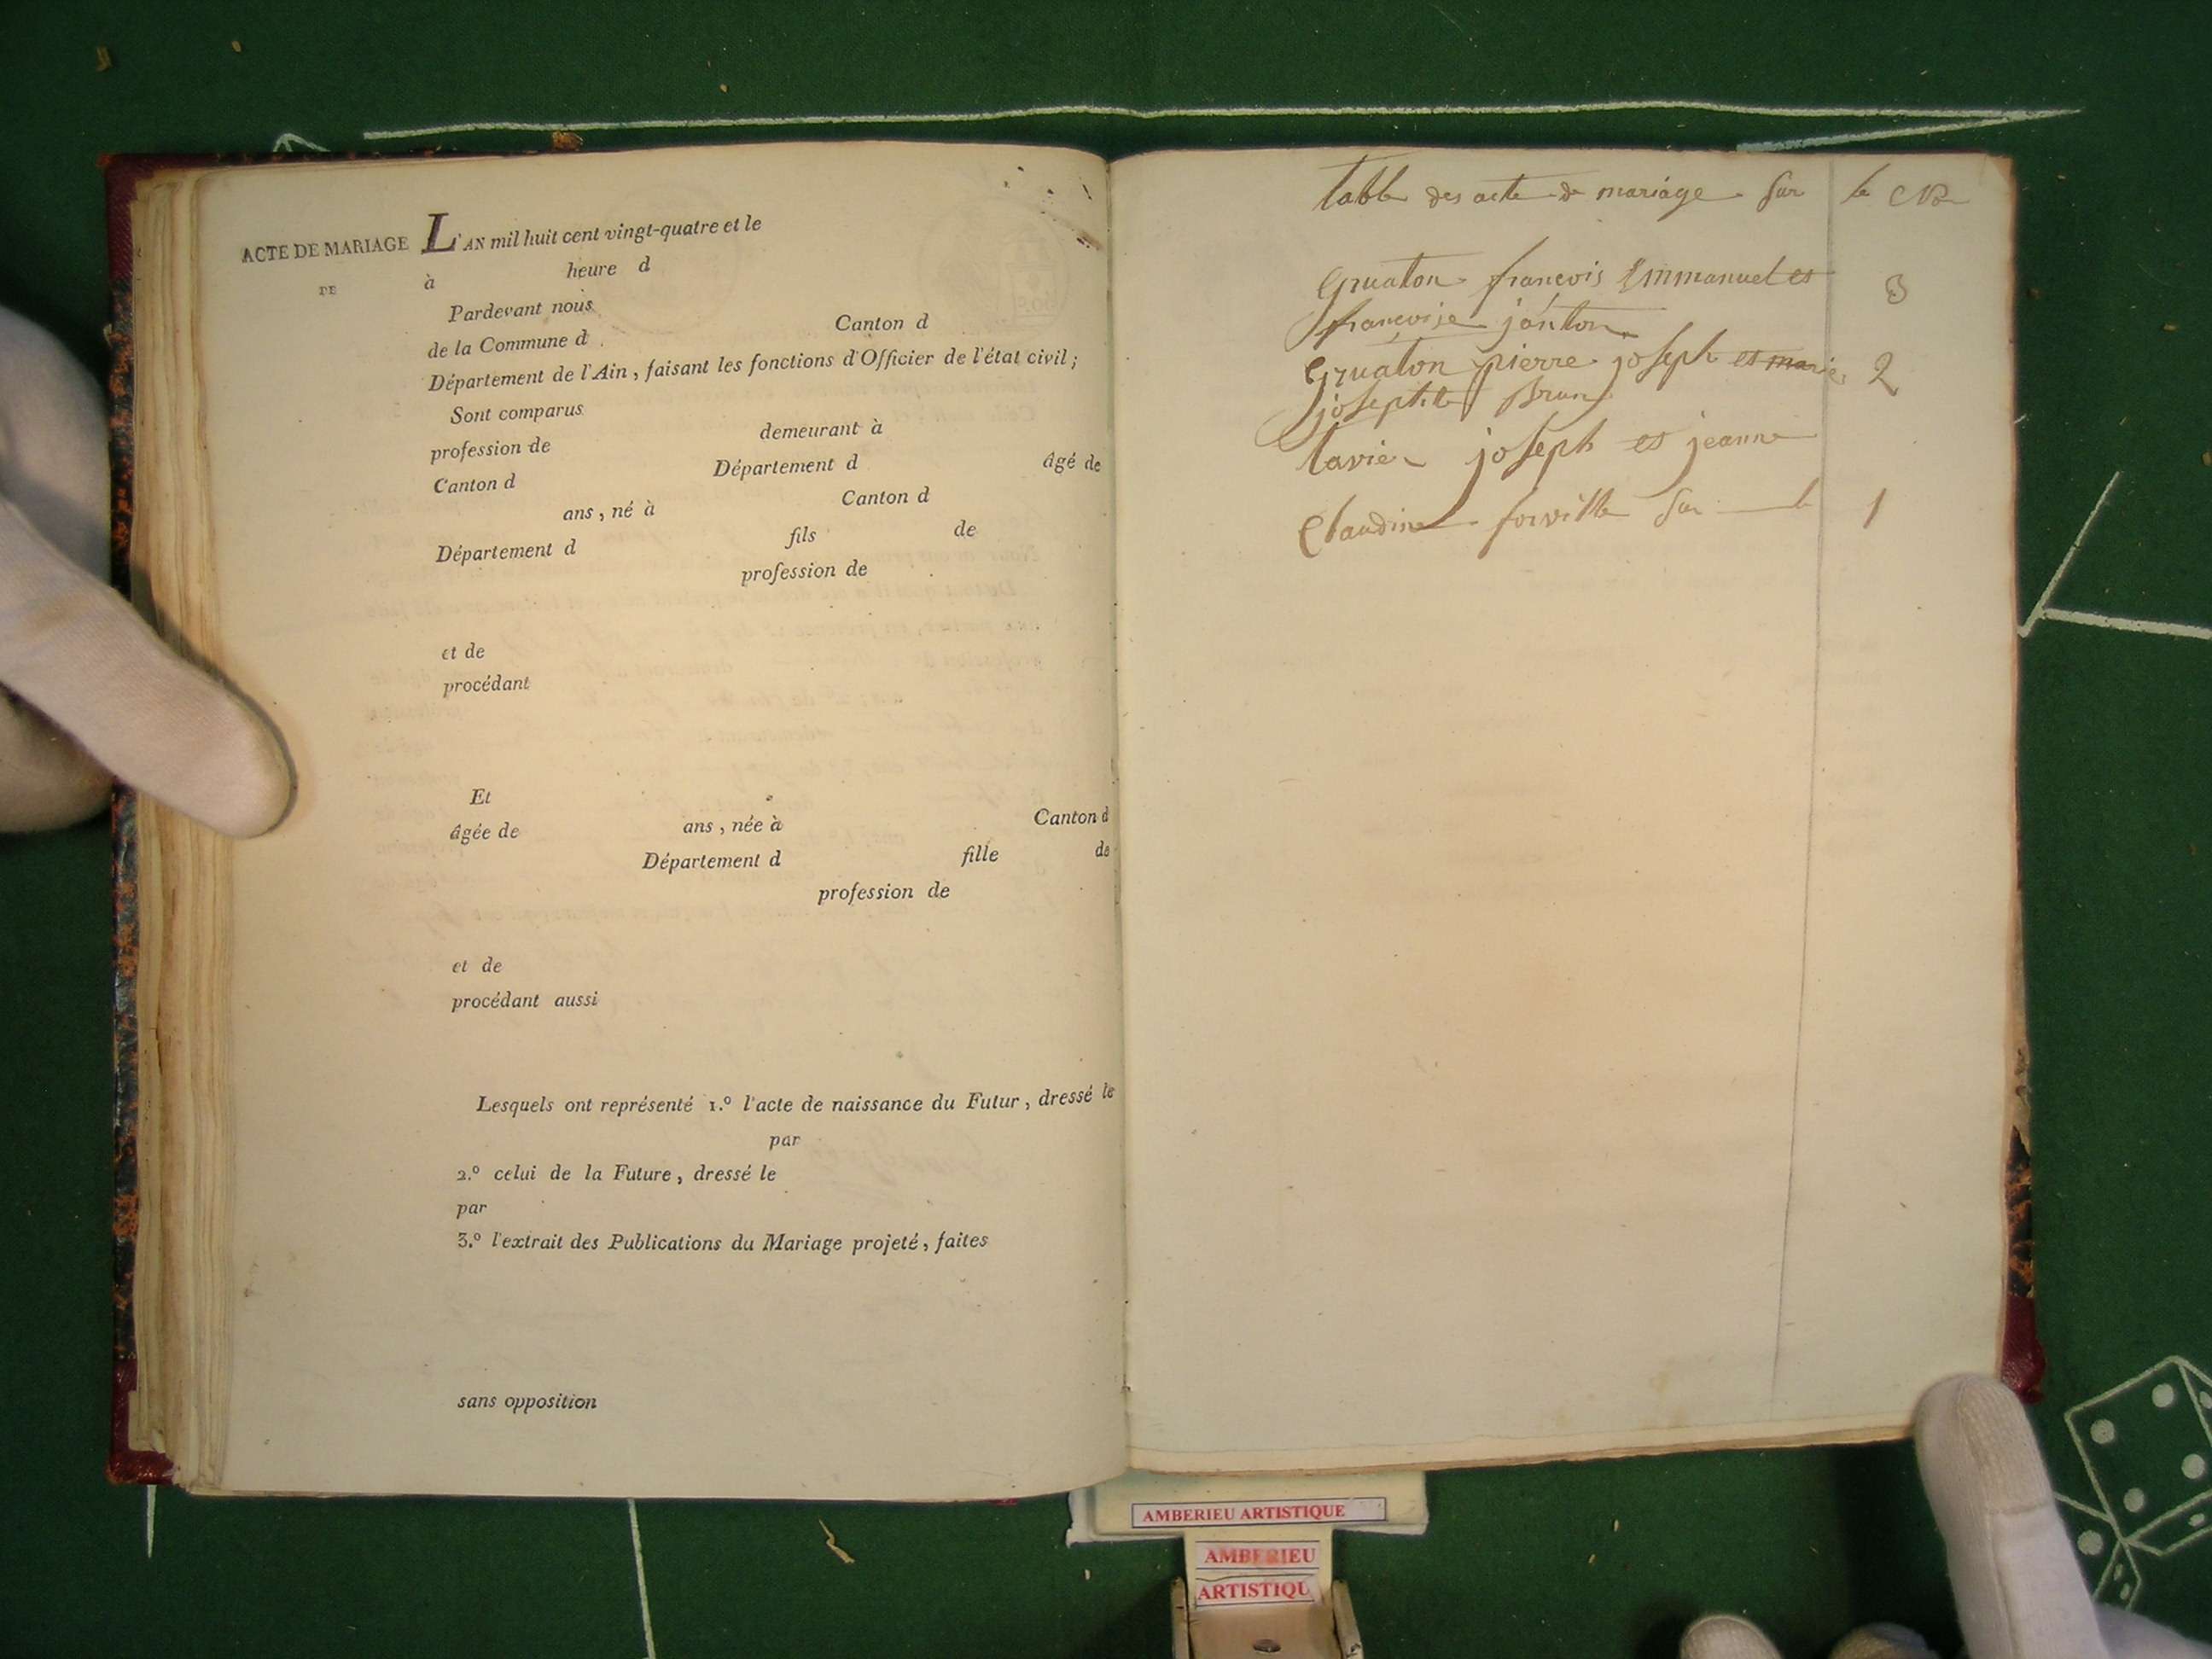 ACTE DE MARIAGE L'AN mil huit cent vingt-quatre et le
DE à heure d
Pardevant nous
de la Commune d Canton d
Département de l'Ain, faisant les fonctions d'Officier de l'état civil;
Sont comparus
profession de demeurant à
Canton d Département d âgé de
ans, né à Canton d
Département d fils de
profession de
et de
procédant
Et
âgée de ans, née à Canton d
Département d fille de
profession de
et de
procédant aussi
Lesquels ont représenté 1.º l'acte de naissance du Futur, dressé le
par
2.º celui de la Future, dressé le
par
3.º l'extrait des Publications du Mariage projeté, faites
sans opposition
table des acte de mariage sur le No
Gruaton françois Emmanuel et 3
françoise janton
Gruaton pierre joseph et marie 2
josephte Brun
tavier joseph et jeanne
Claudine sur le 1
AMBERIEU ARTISTIQUE
AMBERIEU
ARTISTIQU